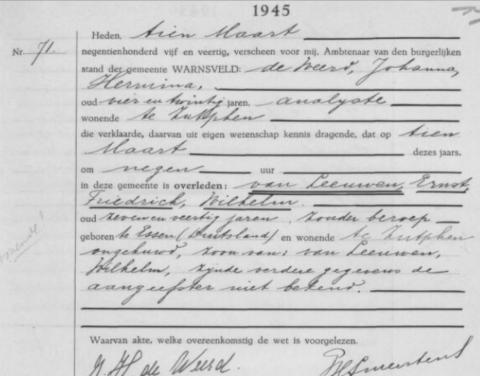 1945
Heden, tien Maart
Nr. 71. negentienhonderd vijf en veertig, verscheen voor mij, Ambtenaar van den burgerlijken
stand der gemeente WARNSVELD: de Weerd, Johanna,
Hermina,
oud vier en twintig jaren, analyste
wonende te Zutphen
die verklaarde, daarvan uit eigen wetenschap kennis dragende, dat op tien
Maart dezes jaars,
om negen uur
in deze gemeente is overleden: van Leeuwen, Ernst,
Friedrich, Wilhelm.
oud zevenenveertig jaren, zonder beroep
geboren te Essen (Duitsland) en wonende te Zutphen
ongehuwd, zoon van: van Leeuwen,
Wilhelm, zijnde verdere gegevens de
aangeefster niet bekend.
Waarvan akte, welke overeenkomstig de wet is voorgelezen.
J. H. de Weerd.